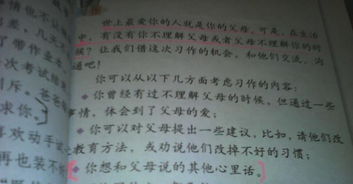 世上最爱你的人就是你的父母。可是，在生活
中，有没有你不理解父母或者父母不理解你的时
候？让我们借这次习作的机会，和他们交流、沟
通吧！
你可以从以下几方面考虑习作的内容：
你曾经有过不理解父母的时候，但通过一些
事情，体会到了父母的爱；
你可以对父母提出一些建议，比如，请他们改
教育方法，或劝说他们改掉不好的习惯；
你想和父母说的其他心里话。
情他也不
差，几天
了带作业
次考试结
斥，爸爸
求你。
喜欢动手
再也装不